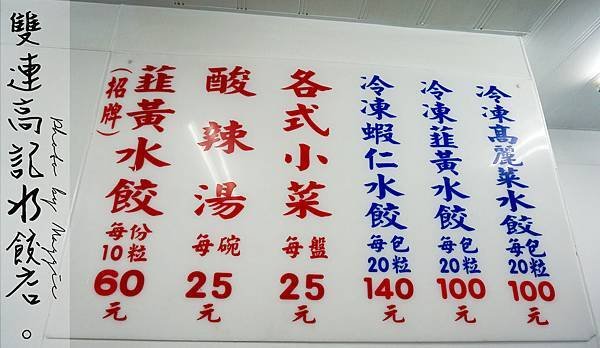 雙連高記水餃店。
Photo by Maggie
(招牌)
韮黃水餃
每份
10粒
60
元
酸辣湯
每碗
25
元
各式小菜
每盤
25
元
冷凍蝦仁水餃
每包
20粒
140
元
冷凍韮黃水餃
每包
20粒
100
元
冷凍高麗菜水餃
每包
20粒
100
元